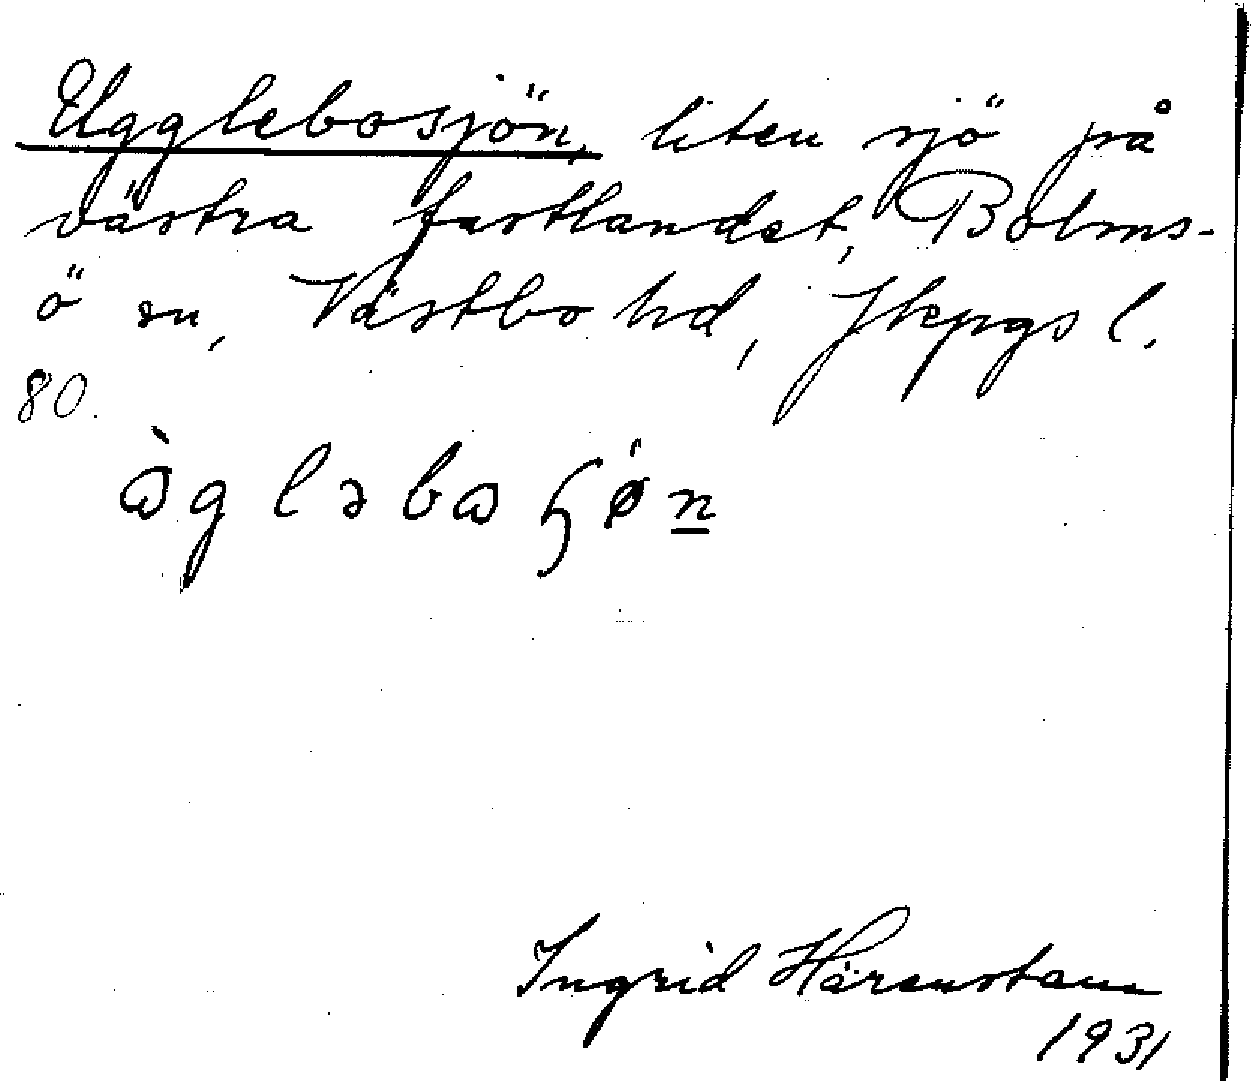 Ugglebosjön, liten sjö på
västra fastlandet, Bolms-
ö sn, Västbo hd, Jkpgs l.
80.
ὼgləbωɧø̀n
Ingrid Härenstam
1931